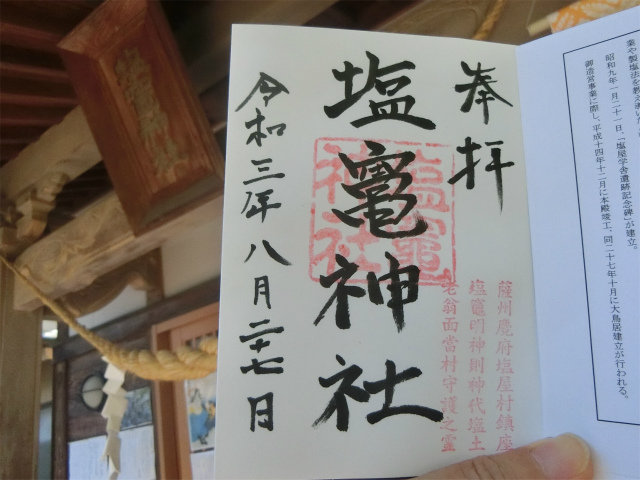 奉拝
塩竈神社
令和三年八月二十七日
塩竈
神社
薩州麑府塩屋村鎮座
塩竈明神則神代塩土
老翁面當村守護之霊
昭和九年一月二十一日、「塩屋学舎遺跡記念碑」が建立。
御造営事業に際し、平成十四年十二月に本殿竣工、同二十七年十月に大鳥居建立が行われる。